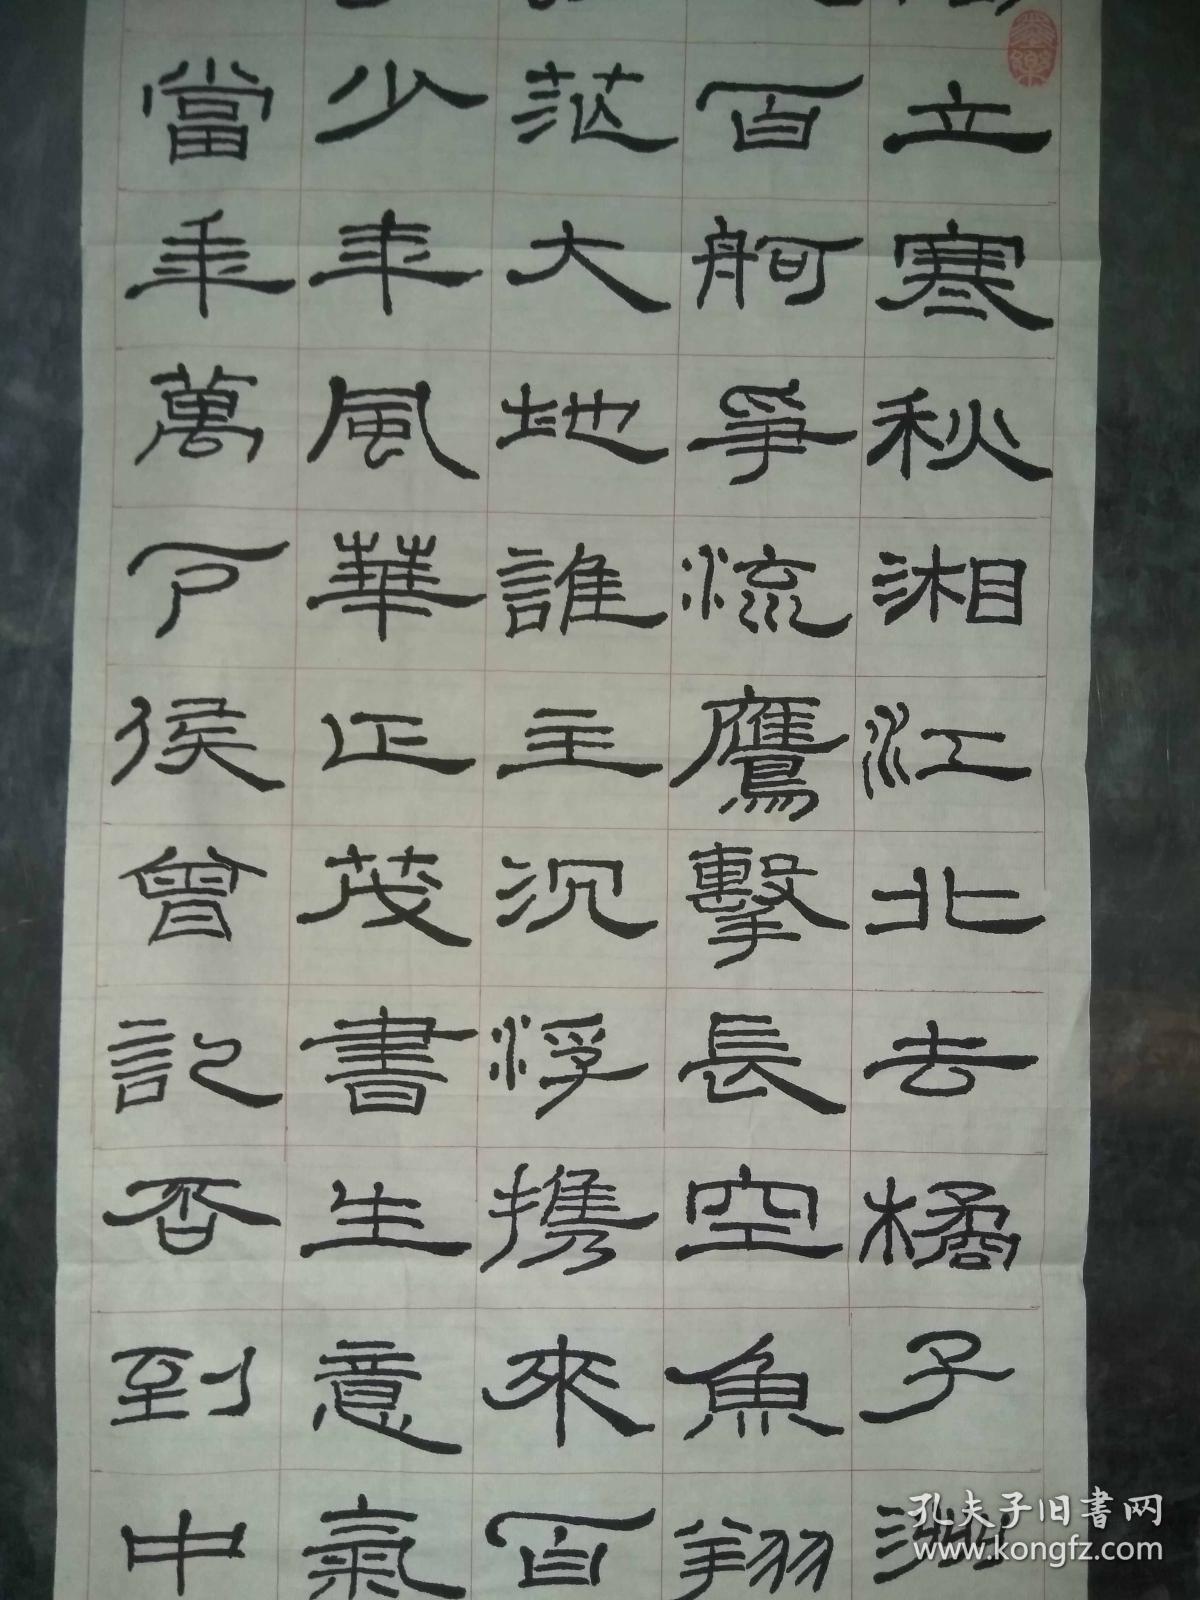 立寒秋湘江北去橘子洲
百舸爭流鷹擊長空魚翔
茫大地誰主沉浮携來百
少年風華正茂書生意氣
當年萬户侯曾記否到中
孔夫子旧書网
www.kongfz.com